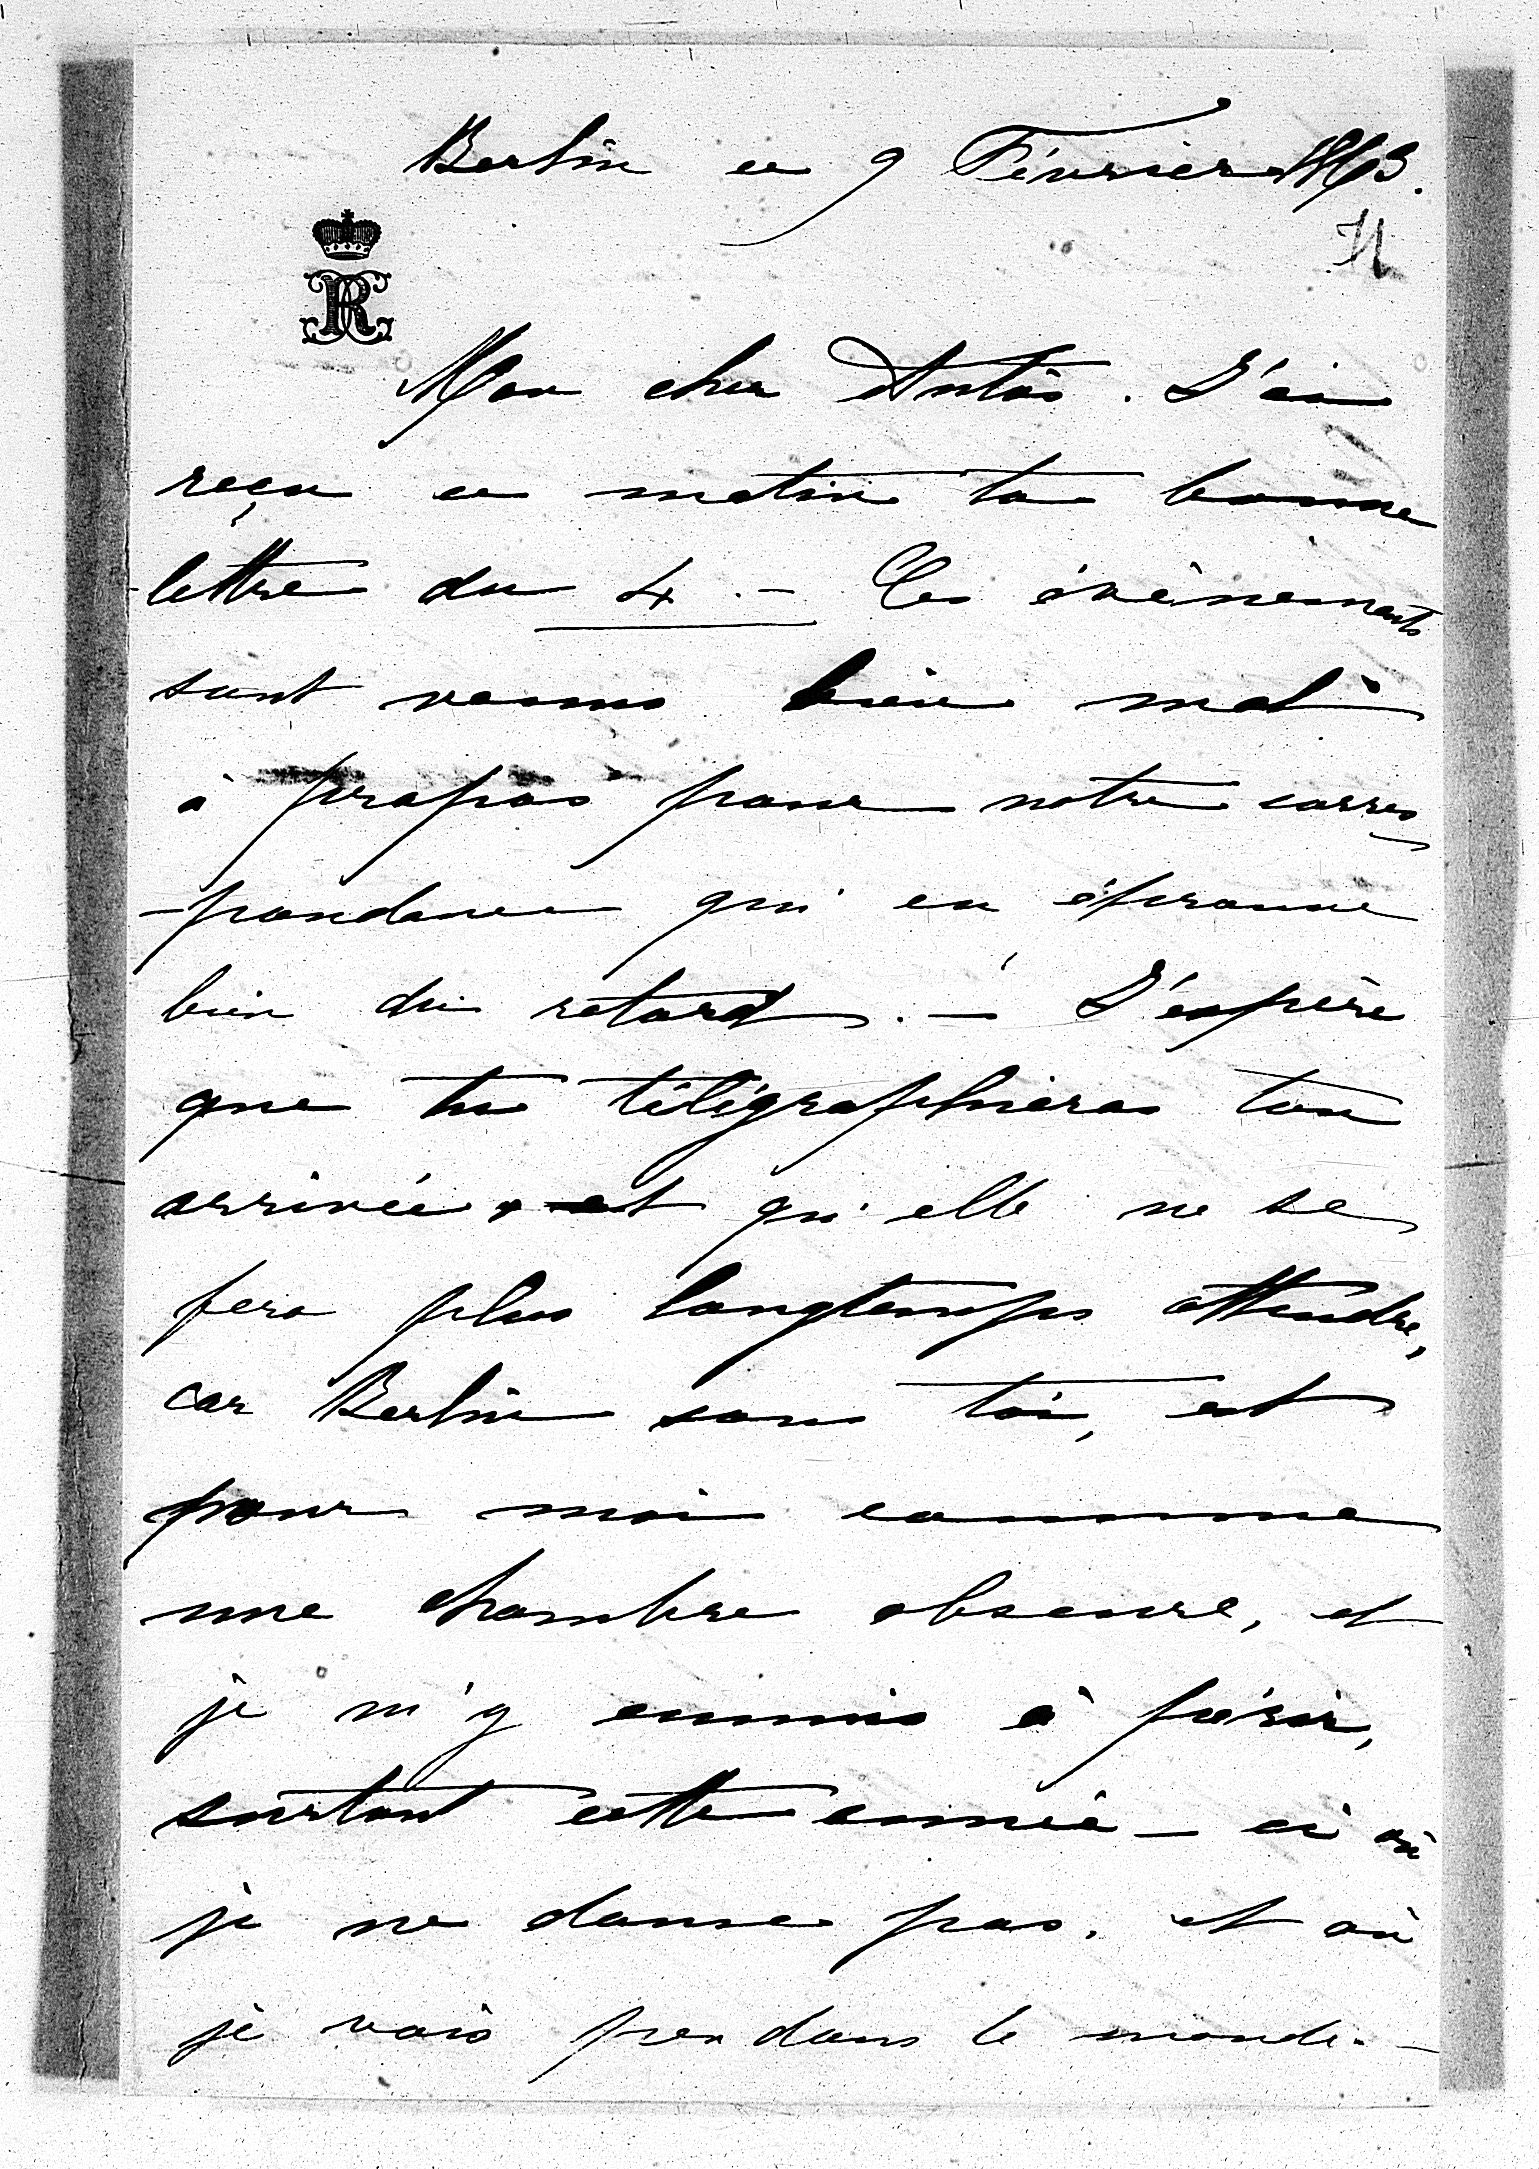 Berlin ce 9 Février 1863.
Mon cher Antós. J'ai
reçu ce matin ta bonne
lettre du 4.- Ces évènements
sont venus bien mal
à propos pour notre corres
-pondance qui en éprouve
bien du retard.- J'espère
que tu télégraphieras ton
arrivée et qu'elle ne se
fera plus longtemps attendre,
car Berlin sans toi, est
pour moi comme
une chambre obscure, et
je m'y ennuis à périr,
surtout cette année-ci où
je ne danse pas, et où
je vais peu dans le monde.-